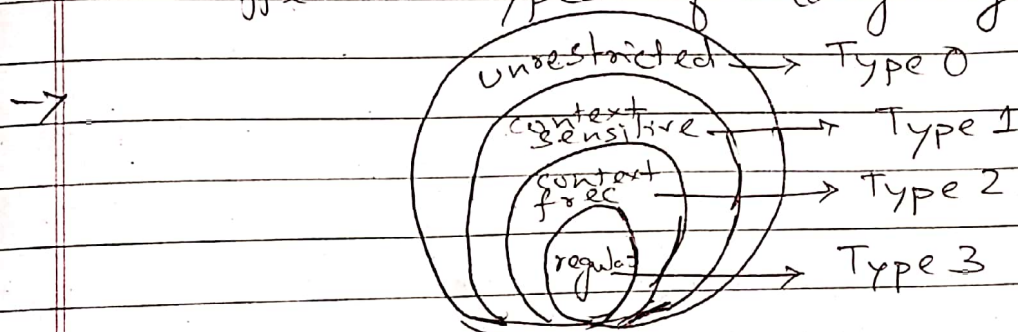 unrestricted → Type 0
→
context
sensitive → Type 1
context
free → Type 2
regular → Type 3